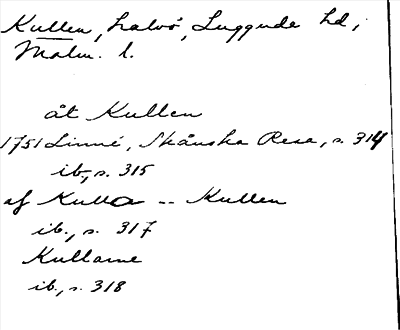 Kullen, halvö, Luggude hd;
Malm. l.
åt Kullen
1751 Linné, Skånska Resa, s. 314
ib., s. 315
af Kulla -- Kullen
ib., s. 317
Kullarne
ib., s. 318